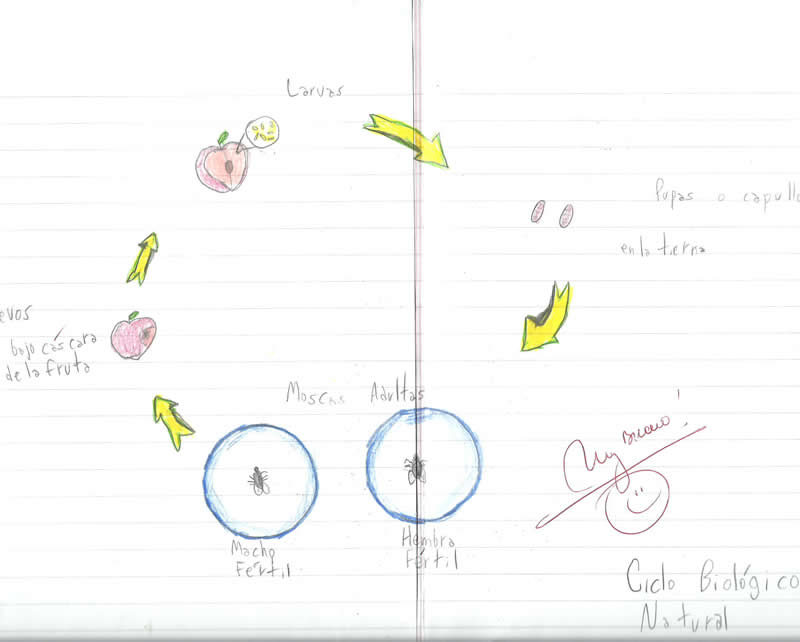 Larvas
Pupas o capullo
en la tierra
evos
bajo cáscara
de la fruta
Moscas Adultas
Muy Bueno!
Macho
Fértil
Hembra
Fértil
Ciclo Biológico
Natural